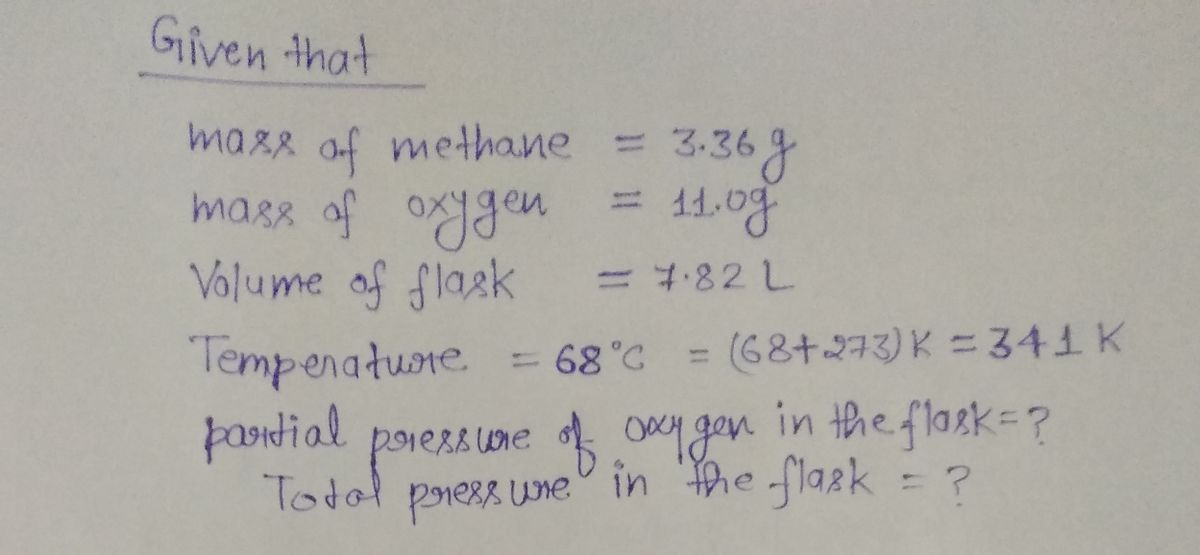 Given that
mass of methane = 3.36 g
mass of oxygen = 11.0g
Volume of flask = 7.82 L
Temperature = 68°C = (68+273) K = 341 K
partial pressure of oxygen in the flask = ?
Total pressure in the flask = ?